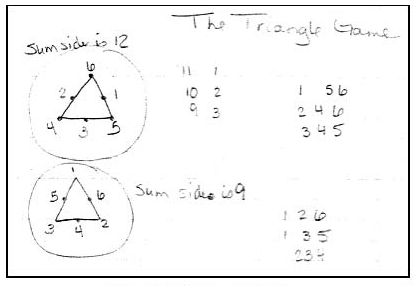 The Triangle Game
Sum side is 12
6
2 1
4 3 5
11 1
10 2
9 3
1 5 6
2 4 6
3 4 5
1
5 6
3 4 2
Sum side is 9
1 2 6
1 3 5
2 3 4